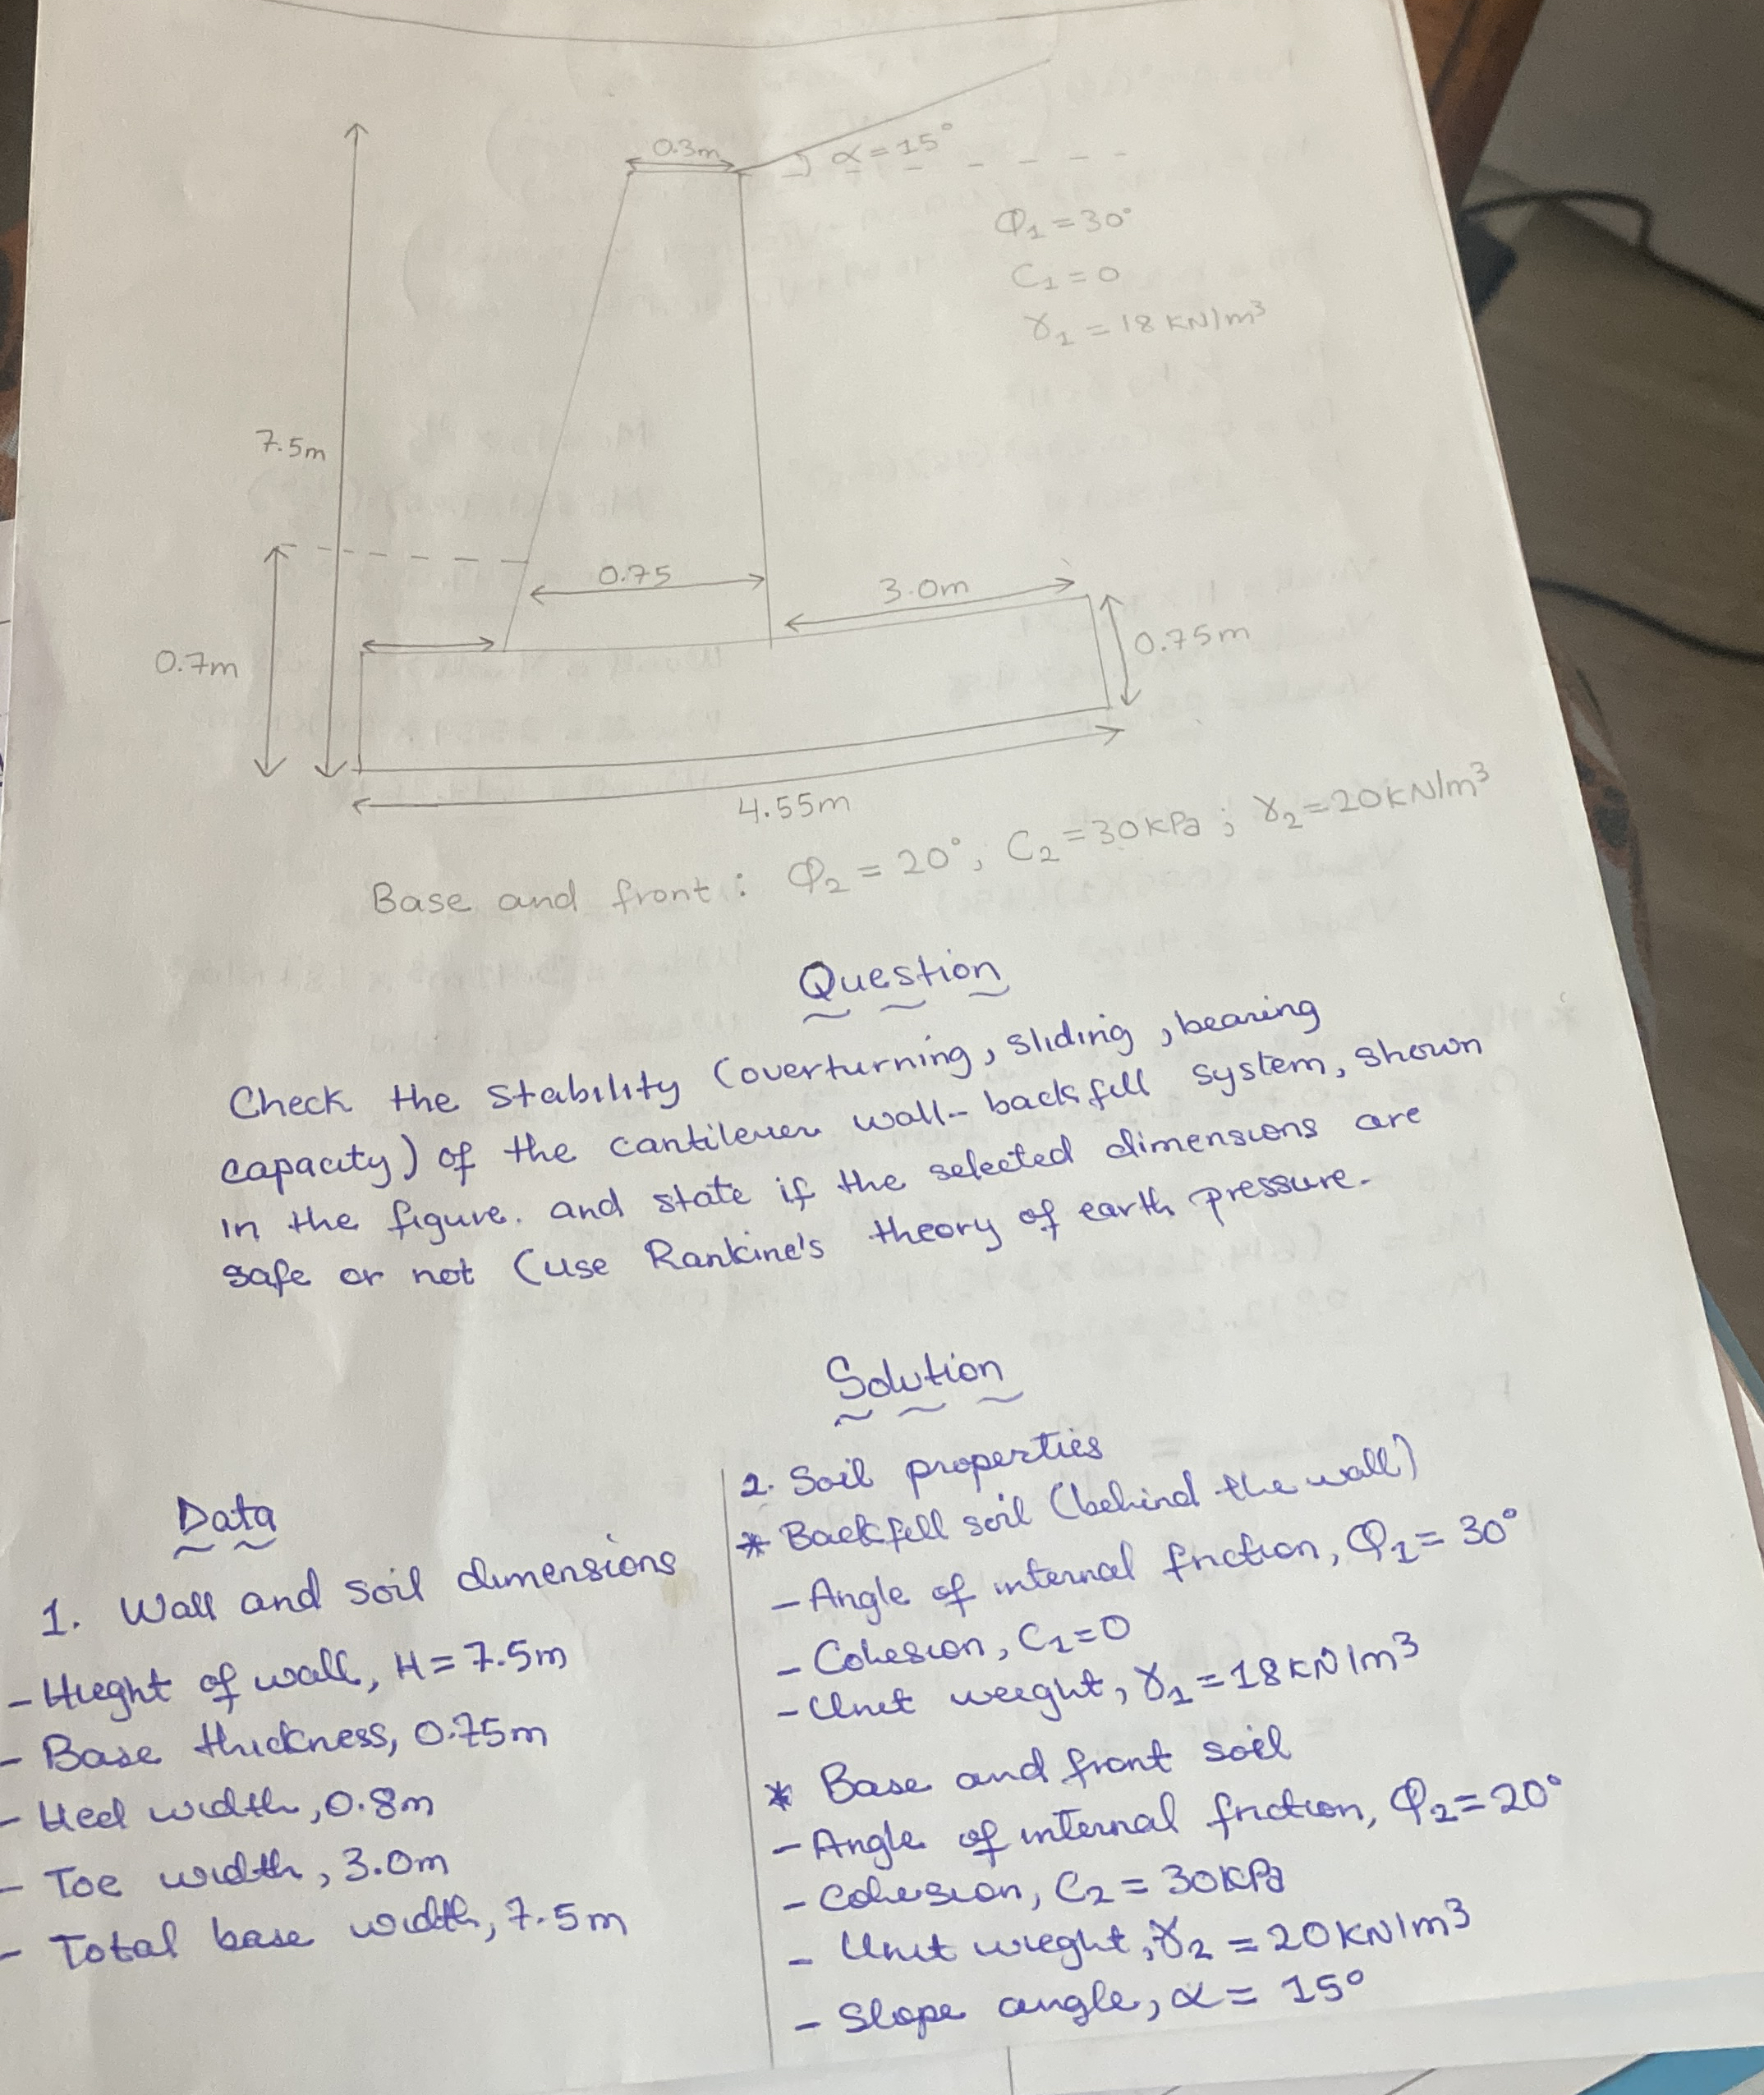 0.3m
α = 15°
Φ1 = 30°
C1 = 0
γ1 = 18 KN/m³
7.5m
0.75
3.0m
0.75m
0.7m
4.55m
Base and front : Φ2 = 20°, C2 = 30kPa ; γ2 = 20kN/m³
Question
Check the stability (overturning, sliding, bearing
capacity) of the cantilever wall-backfill system, shown
in the figure. and state if the selected dimensions are
safe or not (use Rankine's theory of earth pressure.
Solution
Data
1. Wall and soil dimensions
- Hieght of wall, H = 7.5m
- Base thickness, 0.75m
- Heel width, 0.8m
- Toe width, 3.0m
- Total base width, 7.5m
2. Soil properties
* Backfell soil (behind the wall)
- Angle of internal friction, Φ1 = 30°
- Cohesion, C1 = 0
- Unit weight, γ1 = 18KN/m³
* Base and front soil
- Angle of internal friction, Φ2 = 20°
- Cohesion, C2 = 30KPa
- Unit wieght, γ2 = 20KN/m³
- Slope angle, α = 15°